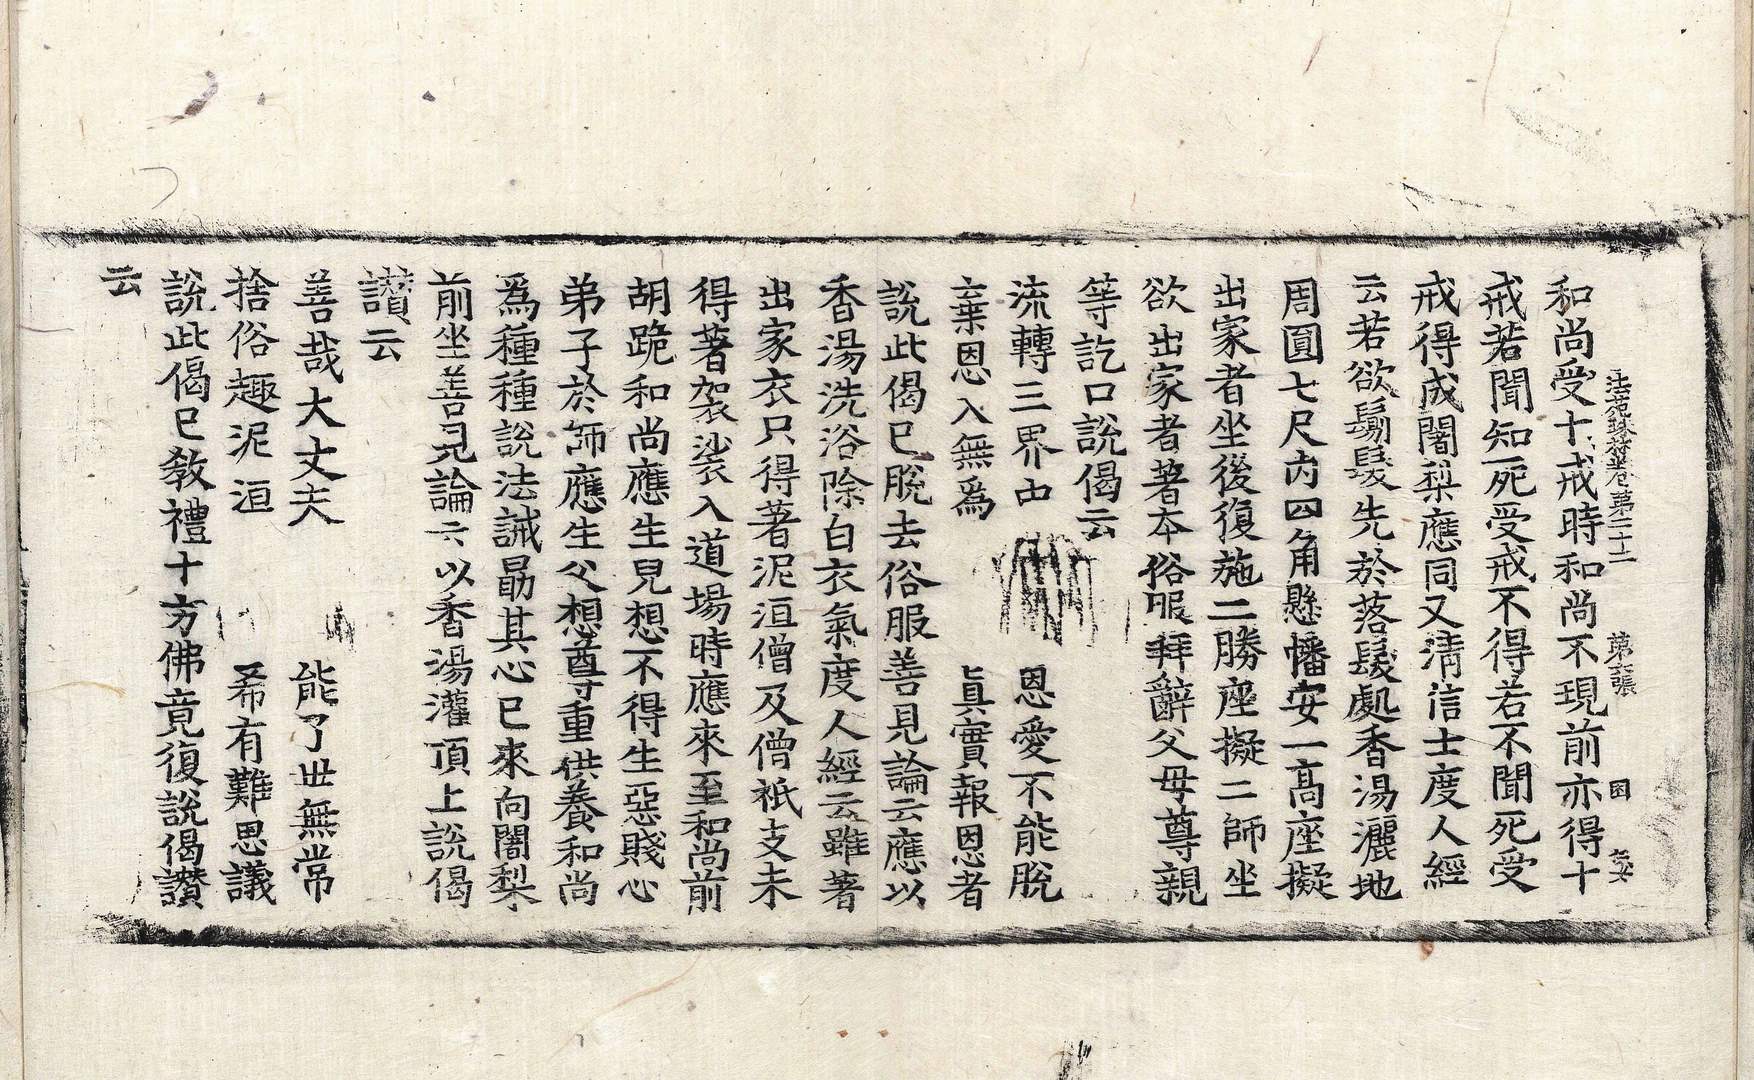 法苑珠林卷第二十二 第六張
和尚受十戒時和尚不現前亦得十
戒若聞知死受戒不得若不聞死受
戒得成闍梨應同又淸信士度人經
云若欲鬄髮先於落髮處香湯灑地
周圓七尺內四角懸幡安一高座擬
出家者坐後復施二勝座擬二師坐
欲出家者著本俗服拜辭父母尊親
等訖口說偈云
流轉三界中 恩愛不能脫
棄恩入無爲 眞實報恩者
說此偈已脫去俗服善見論云應以
香湯洗浴除白衣氣度人經云雖著
出家衣只得著泥洹僧及僧祇支未
得著袈裟入道場時應來至和尚前
胡跪和尚應生兒想不得生惡賤心
弟子於師應生父想尊重供養和尚
爲種種說法誡勗其心已來向闍梨
前坐善見論云以香湯灌頂上說偈
讚云
善哉大丈夫 能了世無常
捨俗趣泥洹 希有難思議
說此偈已敎禮十方佛竟復說偈讚
云